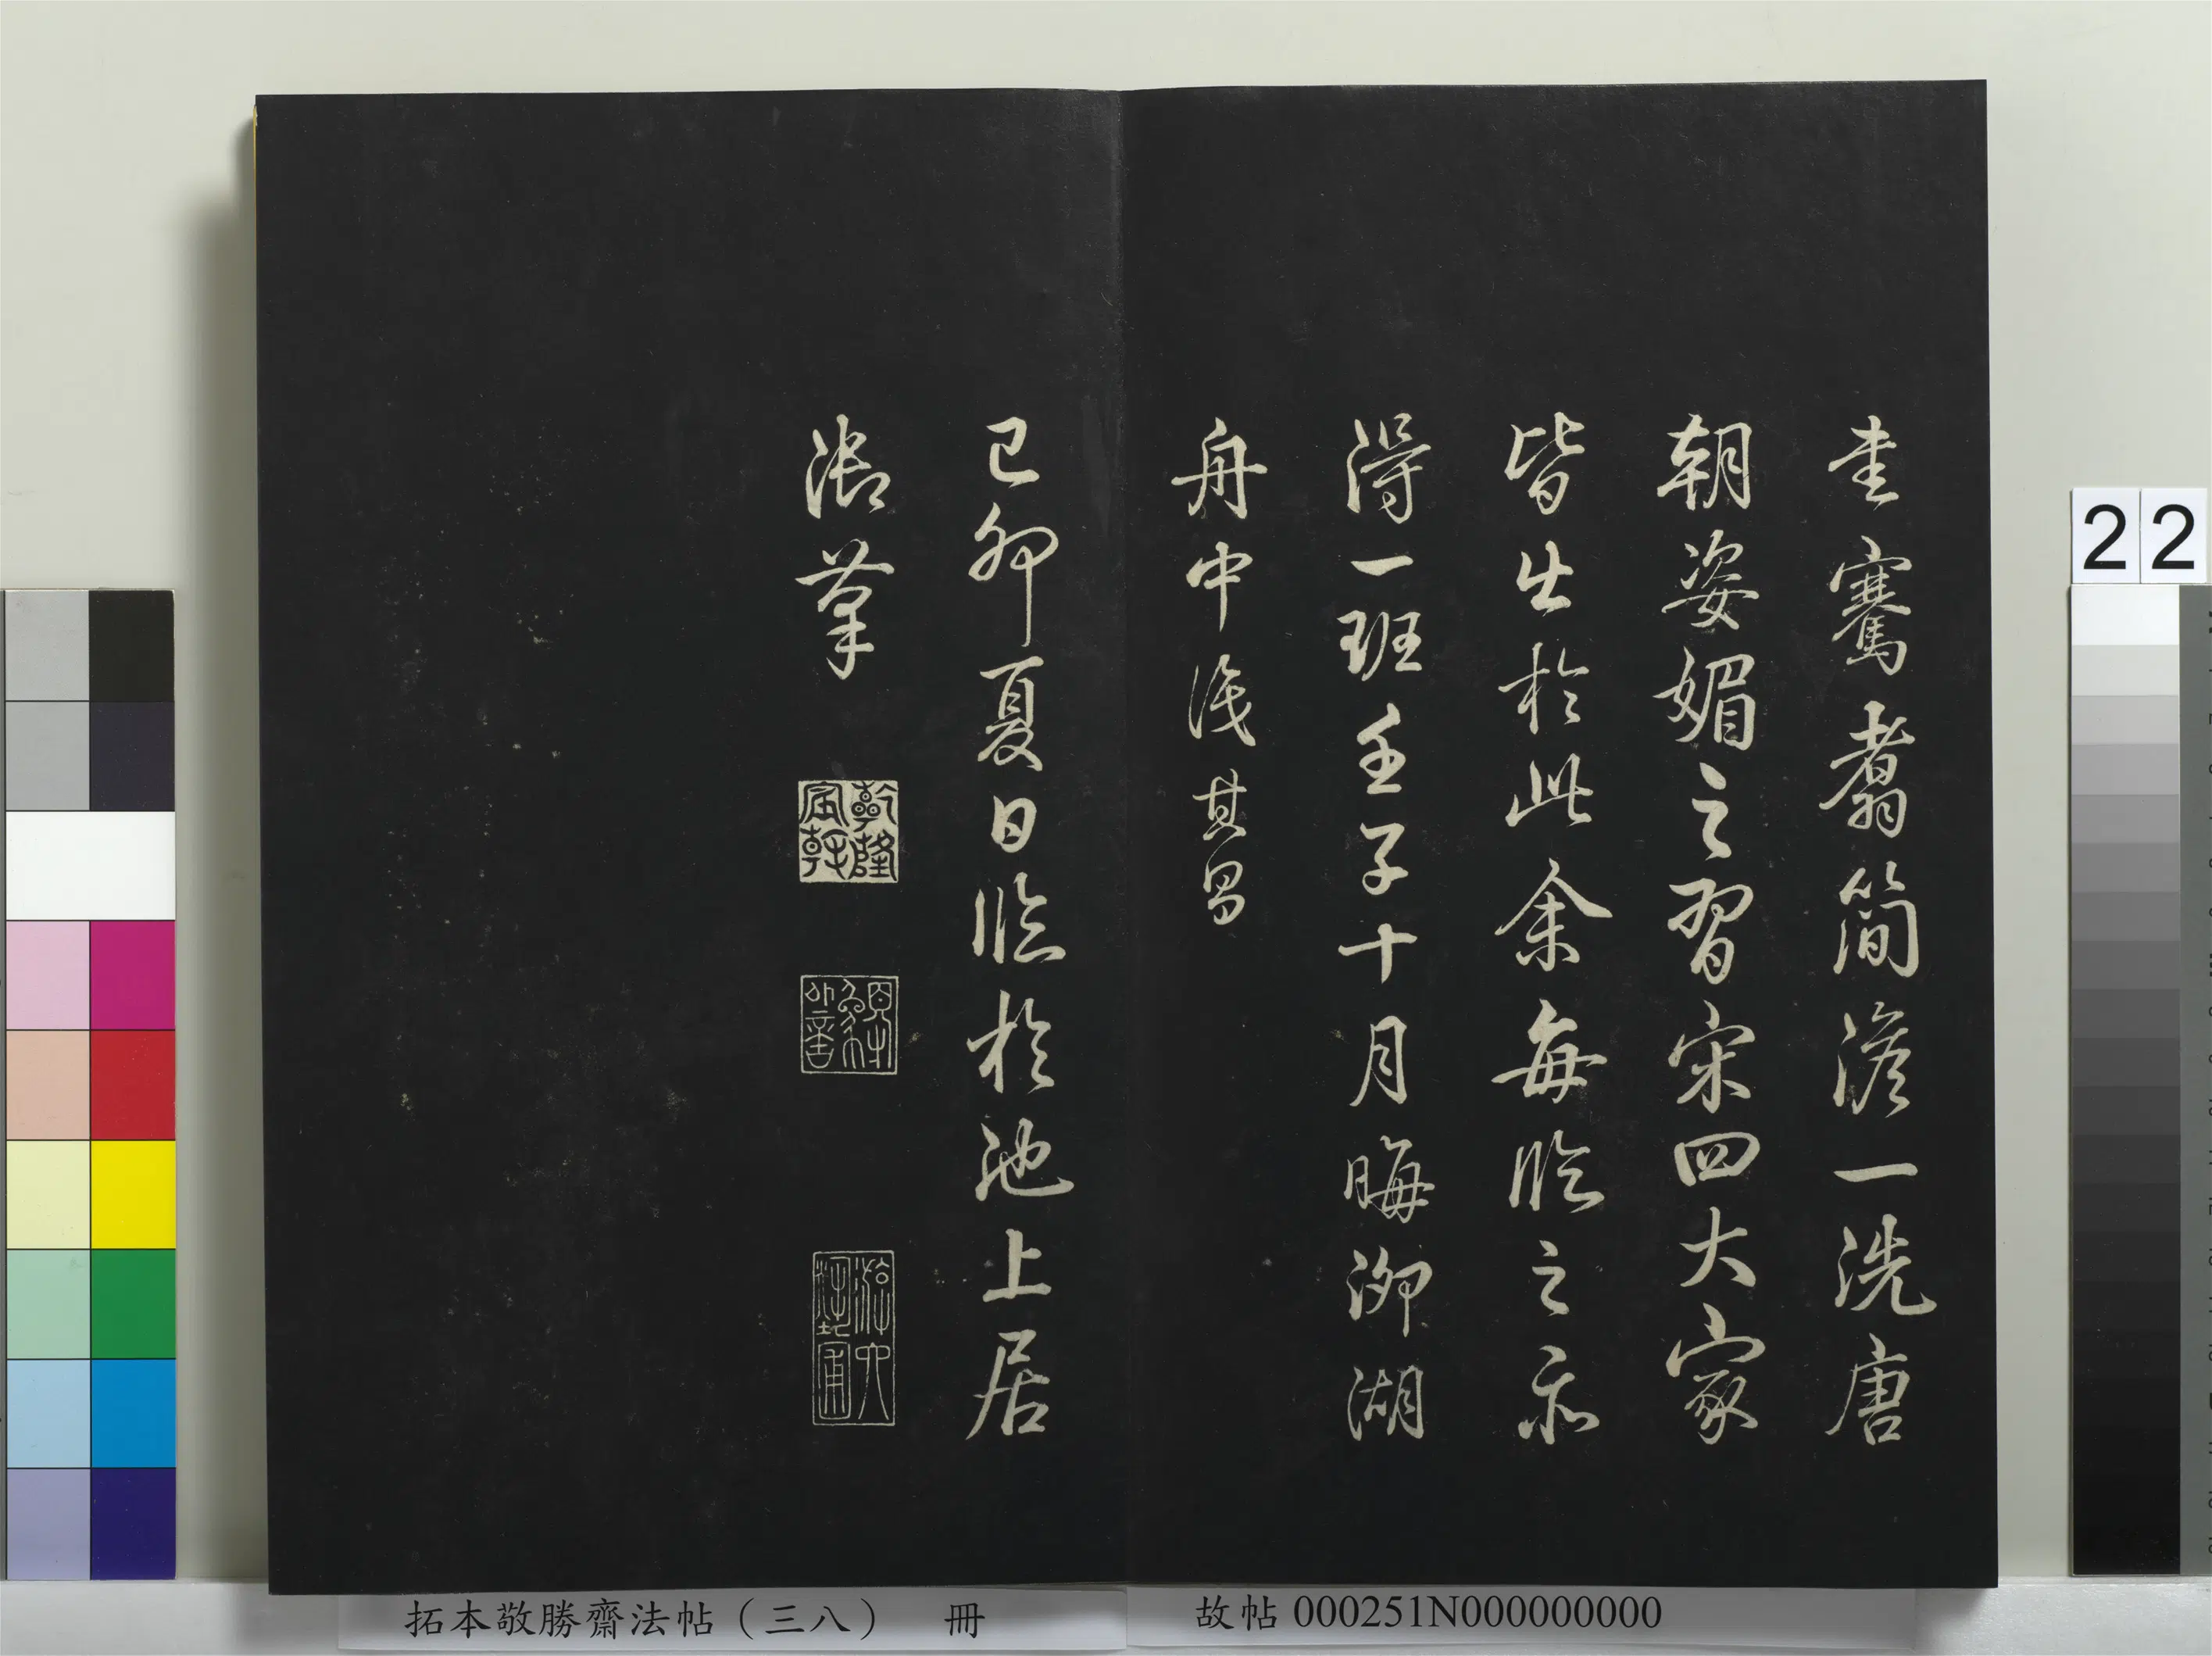 圭騫翥簡澹一洗唐
朝姿媚之習宋四大家
皆出於此余每臨之亦
得一班壬子十月晦泖湖
舟中識其昌
己卯夏日臨於池上居
漲筆
乾隆宸翰
游六藝圃
22
拓本敬勝齋法帖（三八） 冊
故帖 000251N000000000